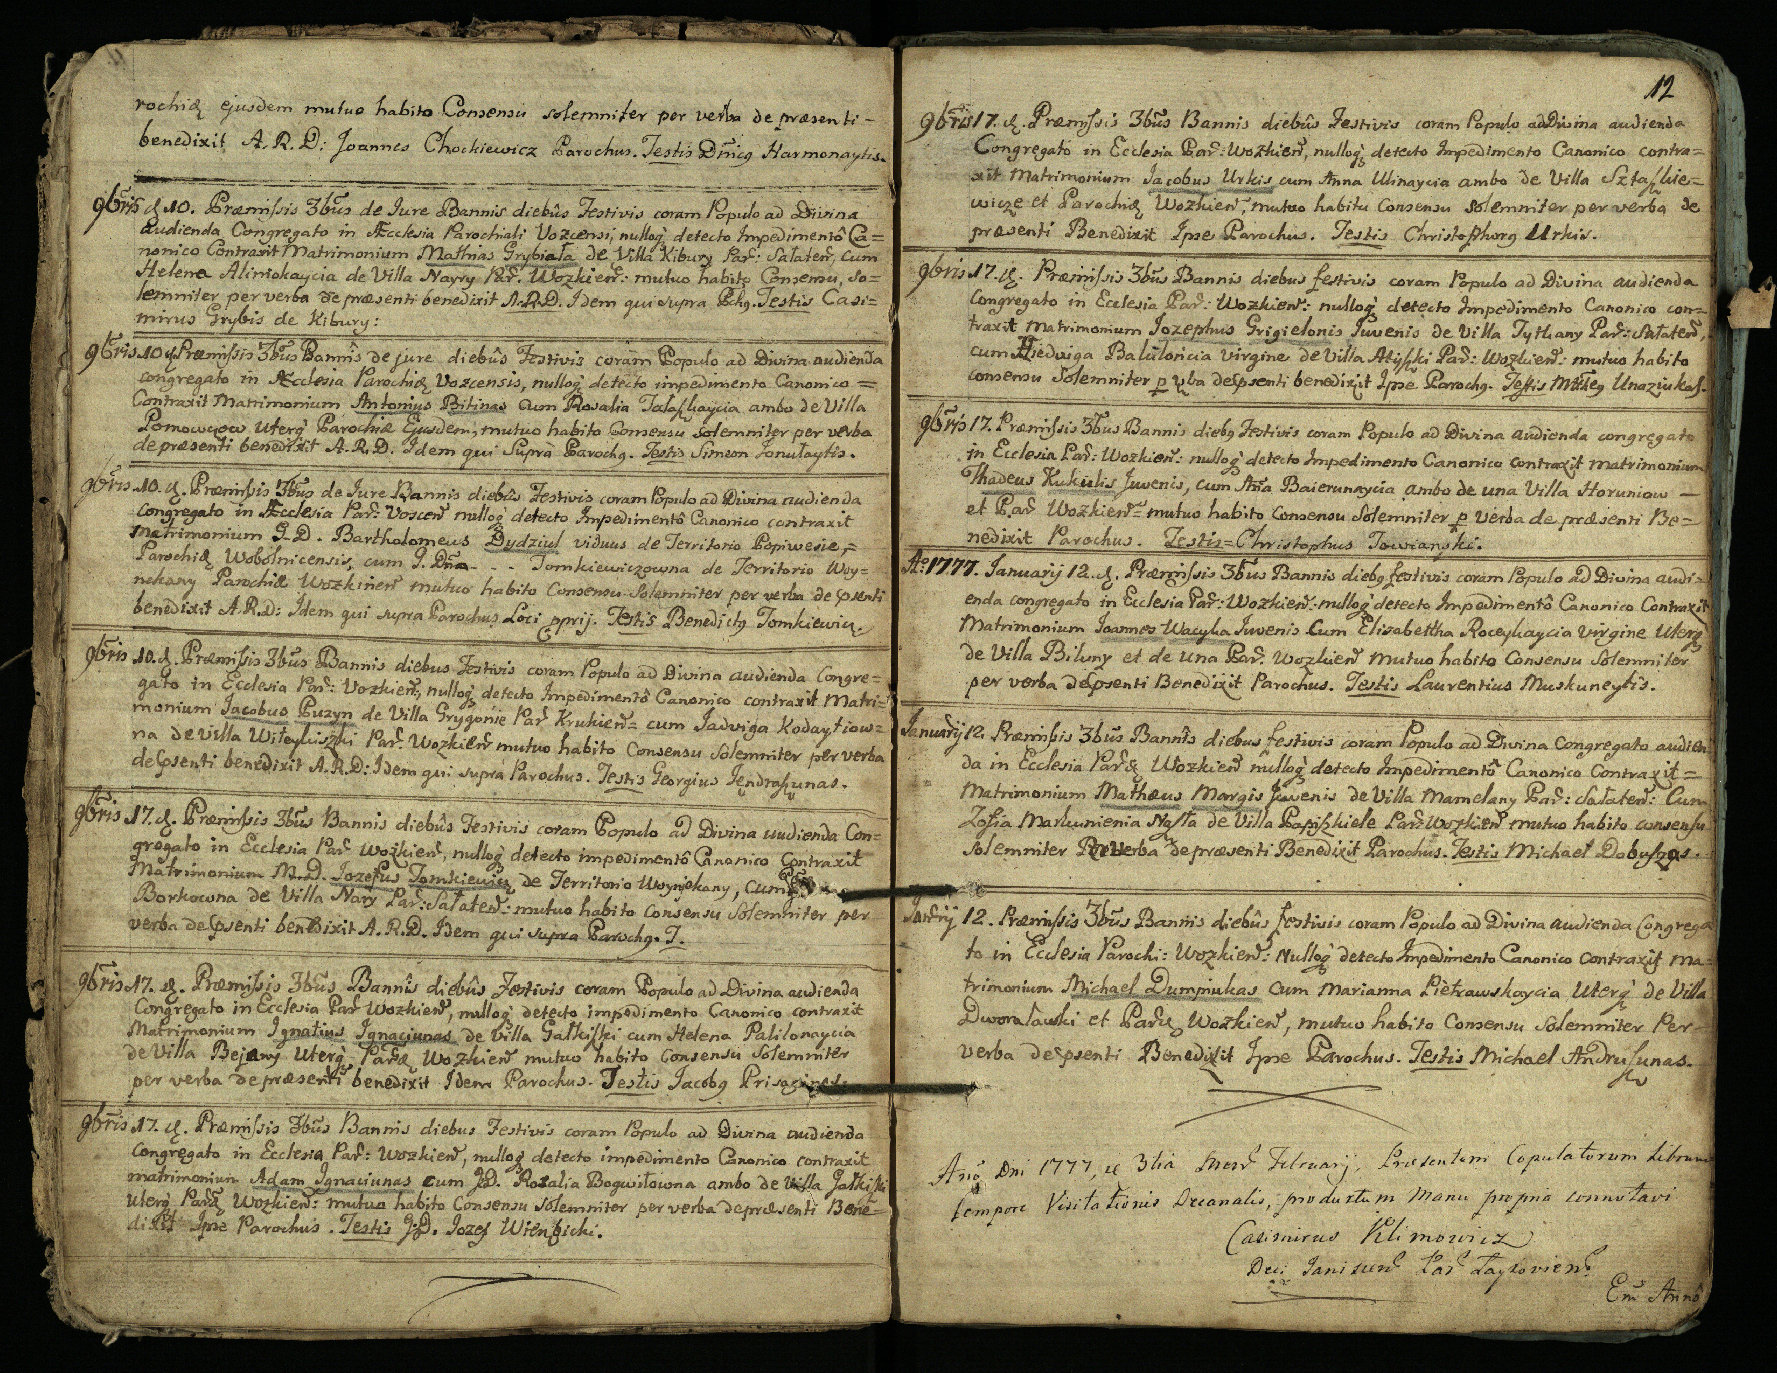 rochiæ ejusdem mutuo habito Consensu solemniter per verba de præsenti-
benedixit A. R. D: Joannes Chockiewicz Parochus. Testis Dñicq Harmonaytis.
9bris d 10. Præmissis 3bus de Iure Bannis diebûs Festivis coram Populo ad Divina
audienda Congregato in Æcclesia Parochiali Vozcensi, nulloq detecto Impedimentô Ca=
nonico Contraxit Matrimonium Mathias Grybiała de Villa Kibury Par: Sałateñ, cum
Helena Alimokaycia de Villa Nayry Par. Wozkieñ: mutuo habito Consensu, so=
lemniter per verba de præsenti benedixit A.R.D. Idem qui supra Pchq. Testis Casi=
mirus Grybis de Kibury:
9bris 10 d Præmissis 3bus Bannîs de jure diebûs Festivis coram Populo ad Divina audienda
congregato in Æcclesia Parochiæ Vozcensis, nulloq detecto impedimento Canonico =
Contraxit Matrimonium Antonius Bitinas cum Rosalia Talaszkaycia ambo de Villa
Pomowcow Uterq Parochiæ Ejusdem, mutuo habito Consensu solemniter per verba
de præsenti benedixit A.R.D. Idem qui Supra Parochq. Testis Simeon Jonułaytis.
9bris 10. d. Præmissis 3bus de Iure Bannis diebûs Festivis coram Populo ad Divina audienda
congregato in Æcclesia Par: Vosceñ nulloq detecto Impedimentô Canonico contraxit
Matrimonium G. D. Bartholomeus Dydziul viduus de Territorio Popiwesie,=
Parochiæ Wobolnicensis, cum G. Dña - - - Tomkiewiczowna de Territorio Woy=
nekany Parochiæ Wozkineñ mutuo habito Consensu Solemniter per verba de psenti
benedixit A.R.D: Idem qui supra Parochus Loci pprij. Testis Benedictq Tomkiewicz.
9bris 10. d. Præmissis 3bus Bannis diebus Festivis coram Populo ad Divina audienda Congre=
gato in Ecclesia Par: Vozkieñ, nulloq detecto Impedimentô Canonico contraxit Matri=
monium Iacobus Puzyn de Villa Grygonie Par Krukieñ= cum Jadviga Kodaytiow=
na de Villa Witeykiszki Par. Wozkieñ mutuo habito Consensu Solemniter per verba
de psenti benedixit A.R.D: Idem qui supra Parochus. Testis Georgius Jendraszunas.
9bris 17. d. Præmissis 3bus Bannis diebûs Festivis coram Populo ad Divina audienda Con=
gregato in Ecclesia Par Wozkieñ, nulloq detecto impedimentô Canonico Contraxit
Matrimonium M.D. Jozefus Tomkiewicz de Territorio Woynekany, cum
Borkowna de Villa Nary Par: Sałateñ: mutuo habito Consensu Solemniter per
verba de psenti benedixit A.R.D. Idem qui supra Parochq. T.
9bris 17. d. Præmissis 3bus Bannîs diebûs Festivis coram Populo ad Divina audienda
Congregato in Ecclesia Par Wozkieñ, nulloq detecto impedimento Canonico contraxit
Matrimonium Ignatius Ignaciunas de Villa Gałkiszki cum Helena Palilonaycia
de Villa Bejany Uterq Paræ Wozkieñ mutuo habito Consensu Solemniter
per verba de præsentis benedixit Idem Parochus. Testis Jacobq Prisaginas.
9bris 17. d. Præmissis 3bus Bannis diebus Festivis coram Populo ad Divina audienda
Congregato in Ecclesia Par: Wozkieñ, nulloq detecto impedimento Canonico contraxit
matrimonium Adam Ignaciunas cum JD. Rozalia Bogwilowna ambo de Villa Gałkiszki
uterq Paræ Wozkieñ: mutuo habito Consensu solemniter per verba de præsenti Bene=
dixit Ipse Parochus. Testis JD. Jozef Wierzbicki.
12
9bris 17. d. Præmissis 3bus Bannis diebûs Festivis coram Populo ad Divina audienda
Congregato in Ecclesia Par: Wozkieñ, nulloq detecto Impedimento Canonico contra=
xit Matrimonium Iacobus Urkis cum Anna Ulinaycia ambo de Villa Sztaszkie=
wicze et Parochiæ Wozkieñ, mutuo habitu Consensu solemniter per verba de
præsenti Benedixit Ipse Parochus. Testis Christophorq Urkis.
9bris 17. d. Præmissis 3bus Bannis diebus festivis coram Populo ad Divina audienda
Congregato in Ecclesia Par: Wozkieñ: nulloq detecto Impedimento Canonico con=
traxit Matrimonium Iozephus Grigielonis Juvenis de Villa Tytkany Par: Sałateñ,
cum Hiedviga Balulońcia virgine de Villa Atiszki Par: Wozkieñ: mutuo habito
consensu Solemniter p vba de psenti benedixit Ipse Parochq. Testis Matteq Unaziukas.
9bris 17. Præmissis 3bus Bannis diebq Festivis coram Populo ad Divina audienda congregato
in Ecclesia Par: Wozkieñ: nulloq detecto Impedimento Canonico contraxit matrimonium
Thadeus Kukulis Juvenis, cum Aña Baierunaycia ambo de una Villa Horuniow -
et Par Wozkieñ= mutuo habito consensu Solemniter p verba de præsenti Be=
nedixit Parochus. Testis=Christophus Towianski.
Ao: 1777. Januarij 12. d. Præmissis 3bus Bannis diebq festivis coram Populo ad Divina audi=
enda congregato in Ecclesia Par: Wozkieñ: nulloq detecto Impedimentô Canonico Contraxit
Matrimonium Joannes Wacyka Juvenis Cum Elizabetha Roceykaycia virgine Uterq
de Villa Biluny et de una Par. Wozkieñ mutuo habito Consensu Solemniter
per verba de psenti Benedixit Parochus. Testis Laurentius Muskuneytis.
Januarij 12. Præmissis 3bus Bannîs diebus festivis coram Populo ad Divina Congregato audien
da in Ecclesia Paræ Wozkieñ nulloq detecto Impedimentô Canonico Contraxit=
Matrimonium Mathæus Margis Juvenis de Villa Mamelany Par: Sałateñ: Cum
Zofia Markunienia de Villa Papiszkiele Par: Wozkieñ mutuo habito consensu
Solemniter Per verba de præsenti Benedixit Parochus. Testis Michael Dobuszas.
Januarij 12. Præmissis 3bus Bannis diebûs festivis coram Populo ad Divina audienda Congrega
to in Ecclesia Parochi: Wozkieñ: Nulloq detecto Impedimento Canonico contraxit Ma=
trimonium Michael Dumpniukas cum Marianna Pietrawskaycia Uterq de Villa
Dworałauki et Paræ Wozkieñ, mutuo habito Consensu Solemniter Per-
verba de psenti Benedixit Ipse Parochus. Testis Michael Andruszunas.
Ano Dni 1777, d 3tia Februarij, Præsentem Copulatorum Librum
tempore Visitationis Decanalis, productum manu propria connotavi
Casimirus Klimowicz